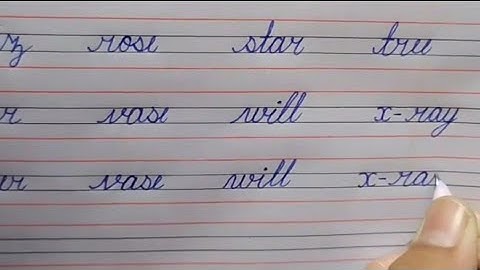 rose star tree
vase will x-ray
vase will x-ra